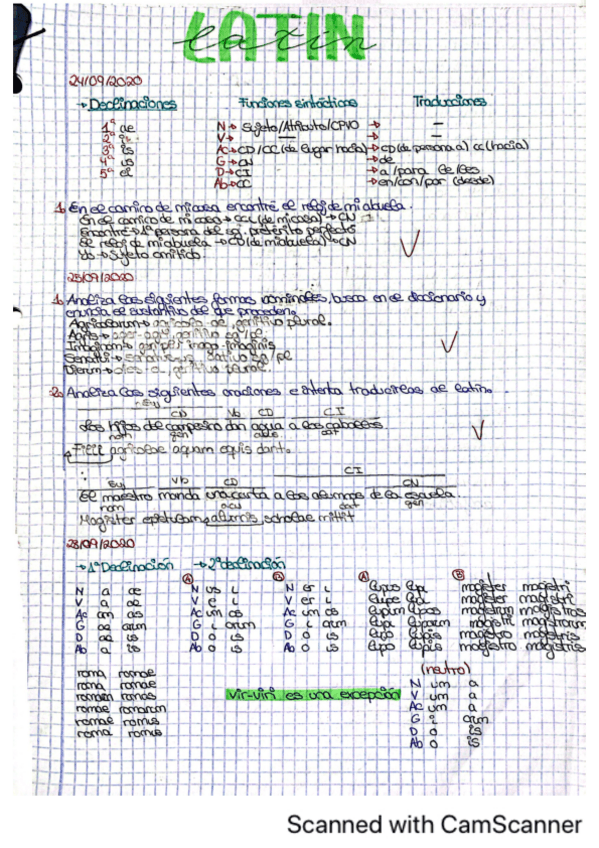 LATIN
latin
24/09/2020
→ Declinaciones Funciones sintácticas Traducciones
1ª ae N→ Sujeto/Atributo/CPVO → —
2ª i V→ → —
3ª is Ac→ CD/CC (de lugar hacia) → CD (de persona a) cc (hacia)
4ª us G→ CN → de
5ª ei D→ CI → a/para le/les
Ab→ CC → en/con/por (desde)
1. En el camino de mi casa encontré el reloj de mi abuela.
En el camino de mi casa → CCL (de mi casa) → CN
Encontré → 1ª persona del sg. pretérito perfecto
El reloj de mi abuela → CD (de mi abuela) → CN
Yo → Sujeto omitido.
25/09/2020
1. Analiza las siguientes formas nominales, busca en el diccionario y
enuncia el sustantivo del que proceden.
Agricolarum → agricola-ae, genitivo plural.
genitivo plural.
2. Analiza las siguientes oraciones e intenta traducirlas al latín.
Suj
CD Vb CD CI
Los hijos del campesino dan agua a los caballos.
nom gen dat
Filii agricolae aquam equis dant.
CI
Suj Vb CD CN
El maestro manda una carta a los alumnos de la escuela.
nom acu dat gen
Magister epistulam alumnis scholae mittit
28/09/2020
→ 1ª Declinación → 2ª declinación
A B A B
N a ae N us i N er i lupus lupi magister magistri
V a ae V e i V er i lupe lupi magister magistri
Ac am as Ac um os Ac um os lupum lupos magistrum magistros
G ae arum G i orum G i orum lupi luporum magistri magistrorum
D ae is D o is D o is lupo lupis magistro magistris
Ab a is Ab o is Ab o is lupo lupis magistro magistris
(neutro)
roma romae N um a
roma romae vir-viri es una excepción V um a
romam romas Ac um a
romae romarum G i orum
romae romis D o is
roma romis Ab o is
Scanned with CamScanner